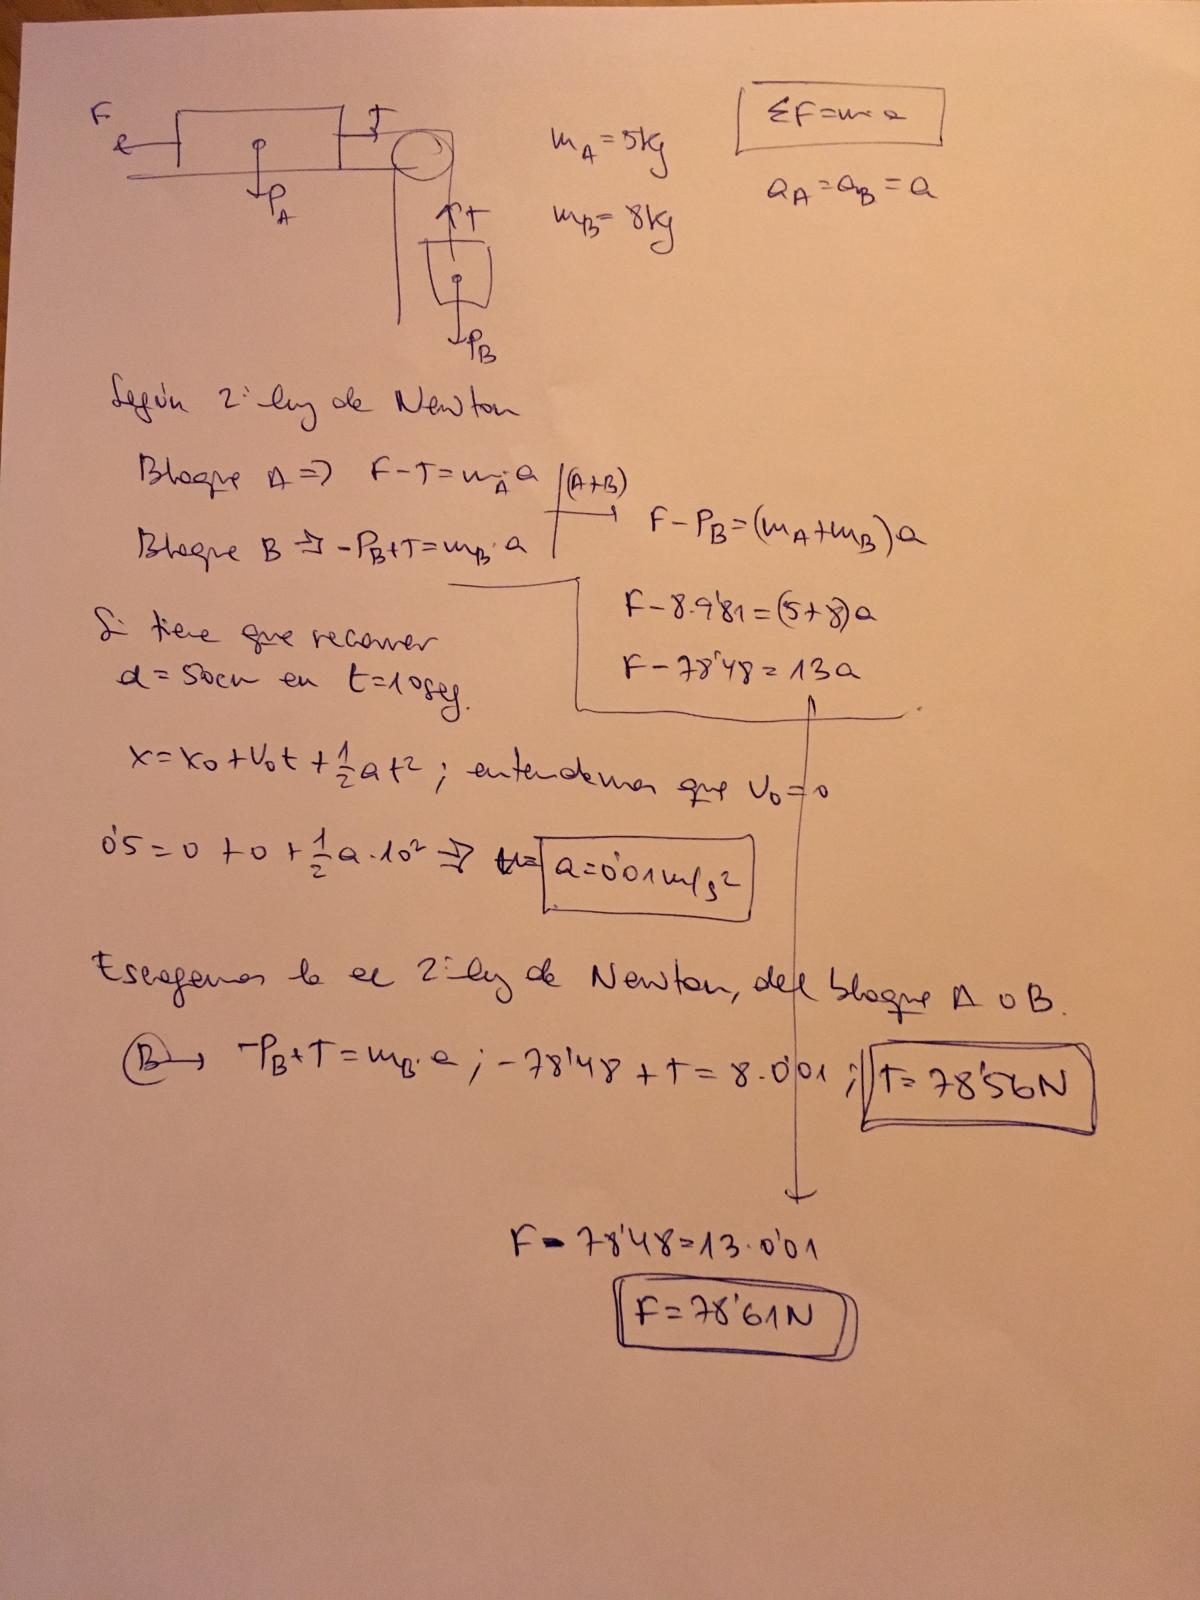 F T
P_A
T
P_B
m_A = 5kg
m_B = 8kg
ΣF = m·a
a_A = a_B = a
Según 2ª ley de Newton
Bloque A ⇒ F - T = m_A·a | (A+B) →
Bloque B ⇒ -P_B + T = m_B·a
F - P_B = (m_A + m_B) a
F - 8·9'81 = (5+8) a
F - 78'48 = 13a
Si tiene que recorrer
d = 50cm en t = 10seg.
x = x₀ + v₀t + 1/2 a t² ; entendemos que v₀ = 0
0'5 = 0 + 0 + 1/2 a·10² ⇒ a = 0'01 m/s²
Escogemos la ec 2ª ley de Newton, del bloque A o B.
(B) → -P_B + T = m_B·a ; -78'48 + T = 8·0'01 ; T = 78'56N
F - 78'48 = 13·0'01
F = 78'61N